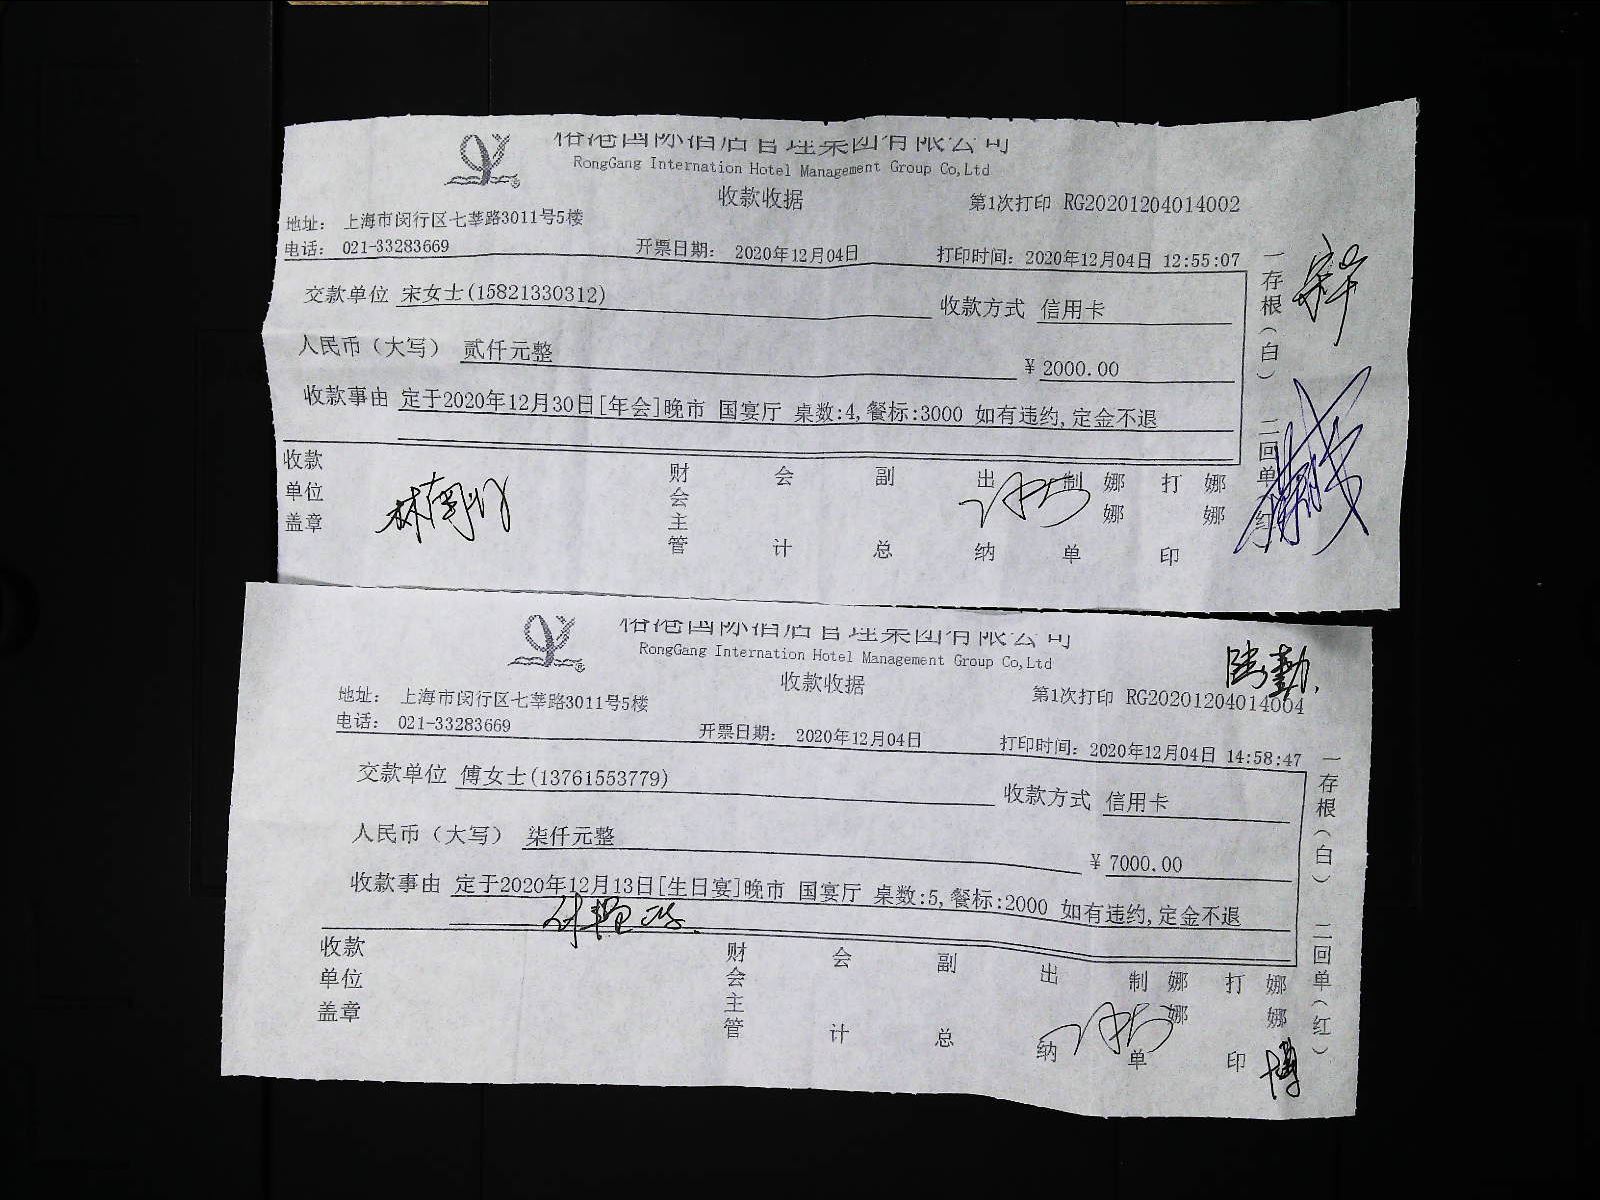 榕港国际酒店管理集团有限公司
RongGang Internation Hotel Management Group Co,Ltd
收款收据
第1次打印 RG20201204014002
地址： 上海市闵行区七莘路3011号5楼
电话： 021-33283669 开票日期： 2020年12月04日 打印时间：2020年12月04日 12:55:07
交款单位 宋女士(15821330312) 收款方式 信用卡
人民币（大写） 贰仟元整 ¥ 2000.00
收款事由 定于2020年12月30日[年会]晚市 国宴厅 桌数:4,餐标:3000 如有违约,定金不退
收款单位盖章 财会主管 会计 副总 出纳 制单 娜娜 打印 娜娜
一存根（白） 二回单（红
榕港国际酒店管理集团有限公司
RongGang Internation Hotel Management Group Co,Ltd
收款收据
第1次打印 RG20201204014004
地址： 上海市闵行区七莘路3011号5楼
电话： 021-33283669 开票日期： 2020年12月04日 打印时间：2020年12月04日 14:58:47
交款单位 傅女士(13761553779) 收款方式 信用卡
人民币（大写） 柒仟元整 ¥ 7000.00
收款事由 定于2020年12月13日[生日宴]晚市 国宴厅 桌数:5,餐标:2000 如有违约,定金不退
收款单位盖章 财会主管 会计 副总 出纳 制单 娜娜 打印 娜娜
一存根（白） 二回单（红）